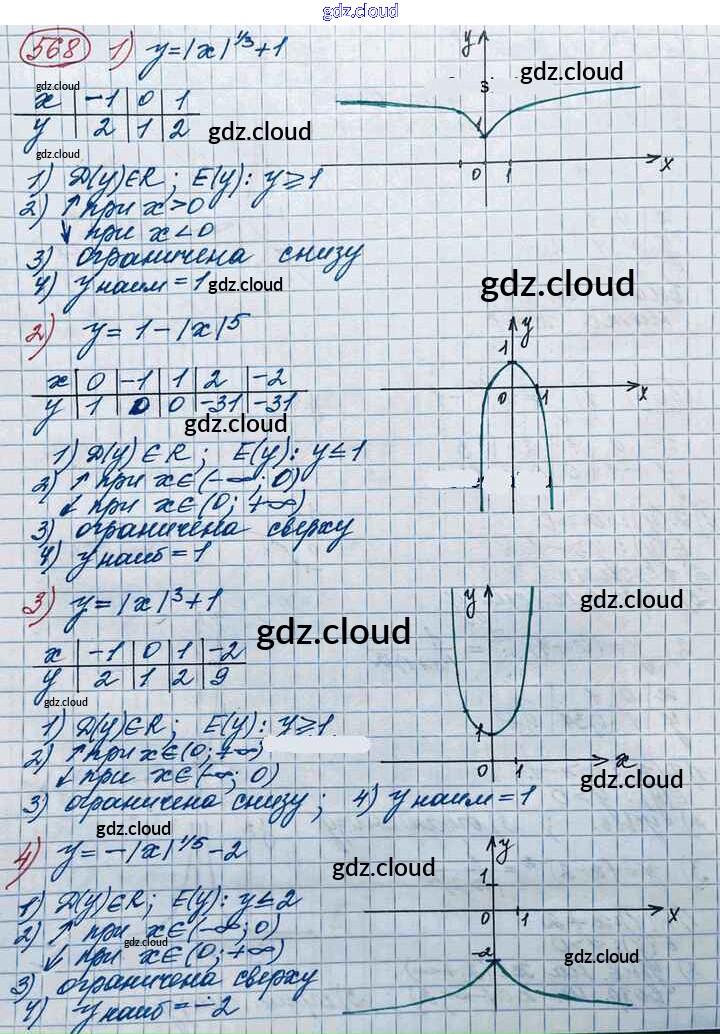 gdz.cloud
568 1) y=|x|^1/3+1
gdz.cloud
x | -1 | 0 | 1
y | 2 | 1 | 2
gdz.cloud
gdz.cloud
1) D(y)∈R; E(y): y≥1
2) ↑ при x>0
↓ при x<0
3) ограничена снизу
4) y наим = 1
gdz.cloud
y
gdz.cloud
s
1
0 1 x
gdz.cloud
2) y = 1-|x|^5
x | 0 | -1 | 1 | 2 | -2
y | 1 | 0 | 0 | -31 | -31
gdz.cloud
1) D(y)∈R; E(y): y≤1
2) ↑ при x∈(-∞; 0)
↓ при x∈(0; +∞)
3) ограничена сверху
4) y наиб = 1
y
1
0 1 x
3) y=|x|^3+1
gdz.cloud
gdz.cloud
x | -1 | 0 | 1 | -2
y | 2 | 1 | 2 | 9
gdz.cloud
1) D(y)∈R; E(y): y≥1
2) ↑ при x∈(0; +∞)
↓ при x∈(-∞; 0)
3) ограничена снизу; 4) y наим = 1
y
1
0 1 x
gdz.cloud
gdz.cloud
4) y=-|x|^1/5-2
gdz.cloud
1) D(y)∈R; E(y): y≤2
2) ↑ при x∈(-∞; 0)
↓ при x∈(0; +∞)
gdz.cloud
3) ограничена сверху
4) y наиб = -2
y
1
0 1 x
-2
gdz.cloud